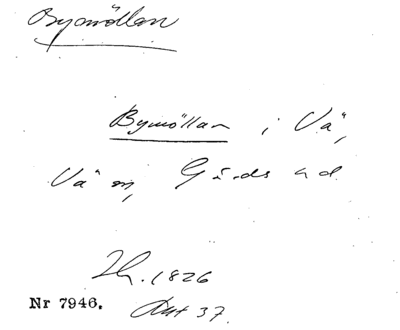 Bymöllan
Bymöllan i Vä,
Vä sn, Gärds hd.
1826
Nr 7946.
37.